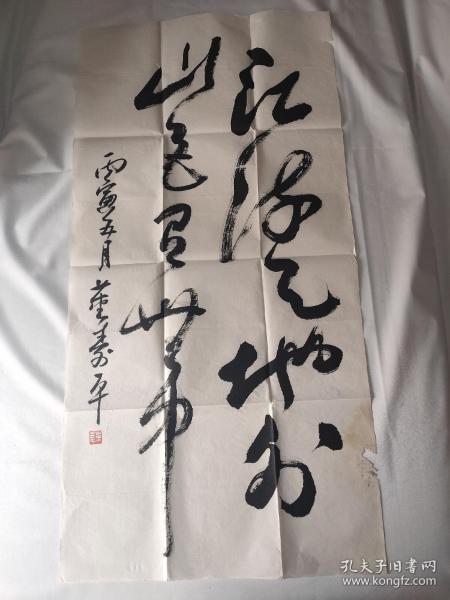 江流天地外
山色有無中
丙寅五月 董壽平
孔夫子旧书网
www.kongfz.com